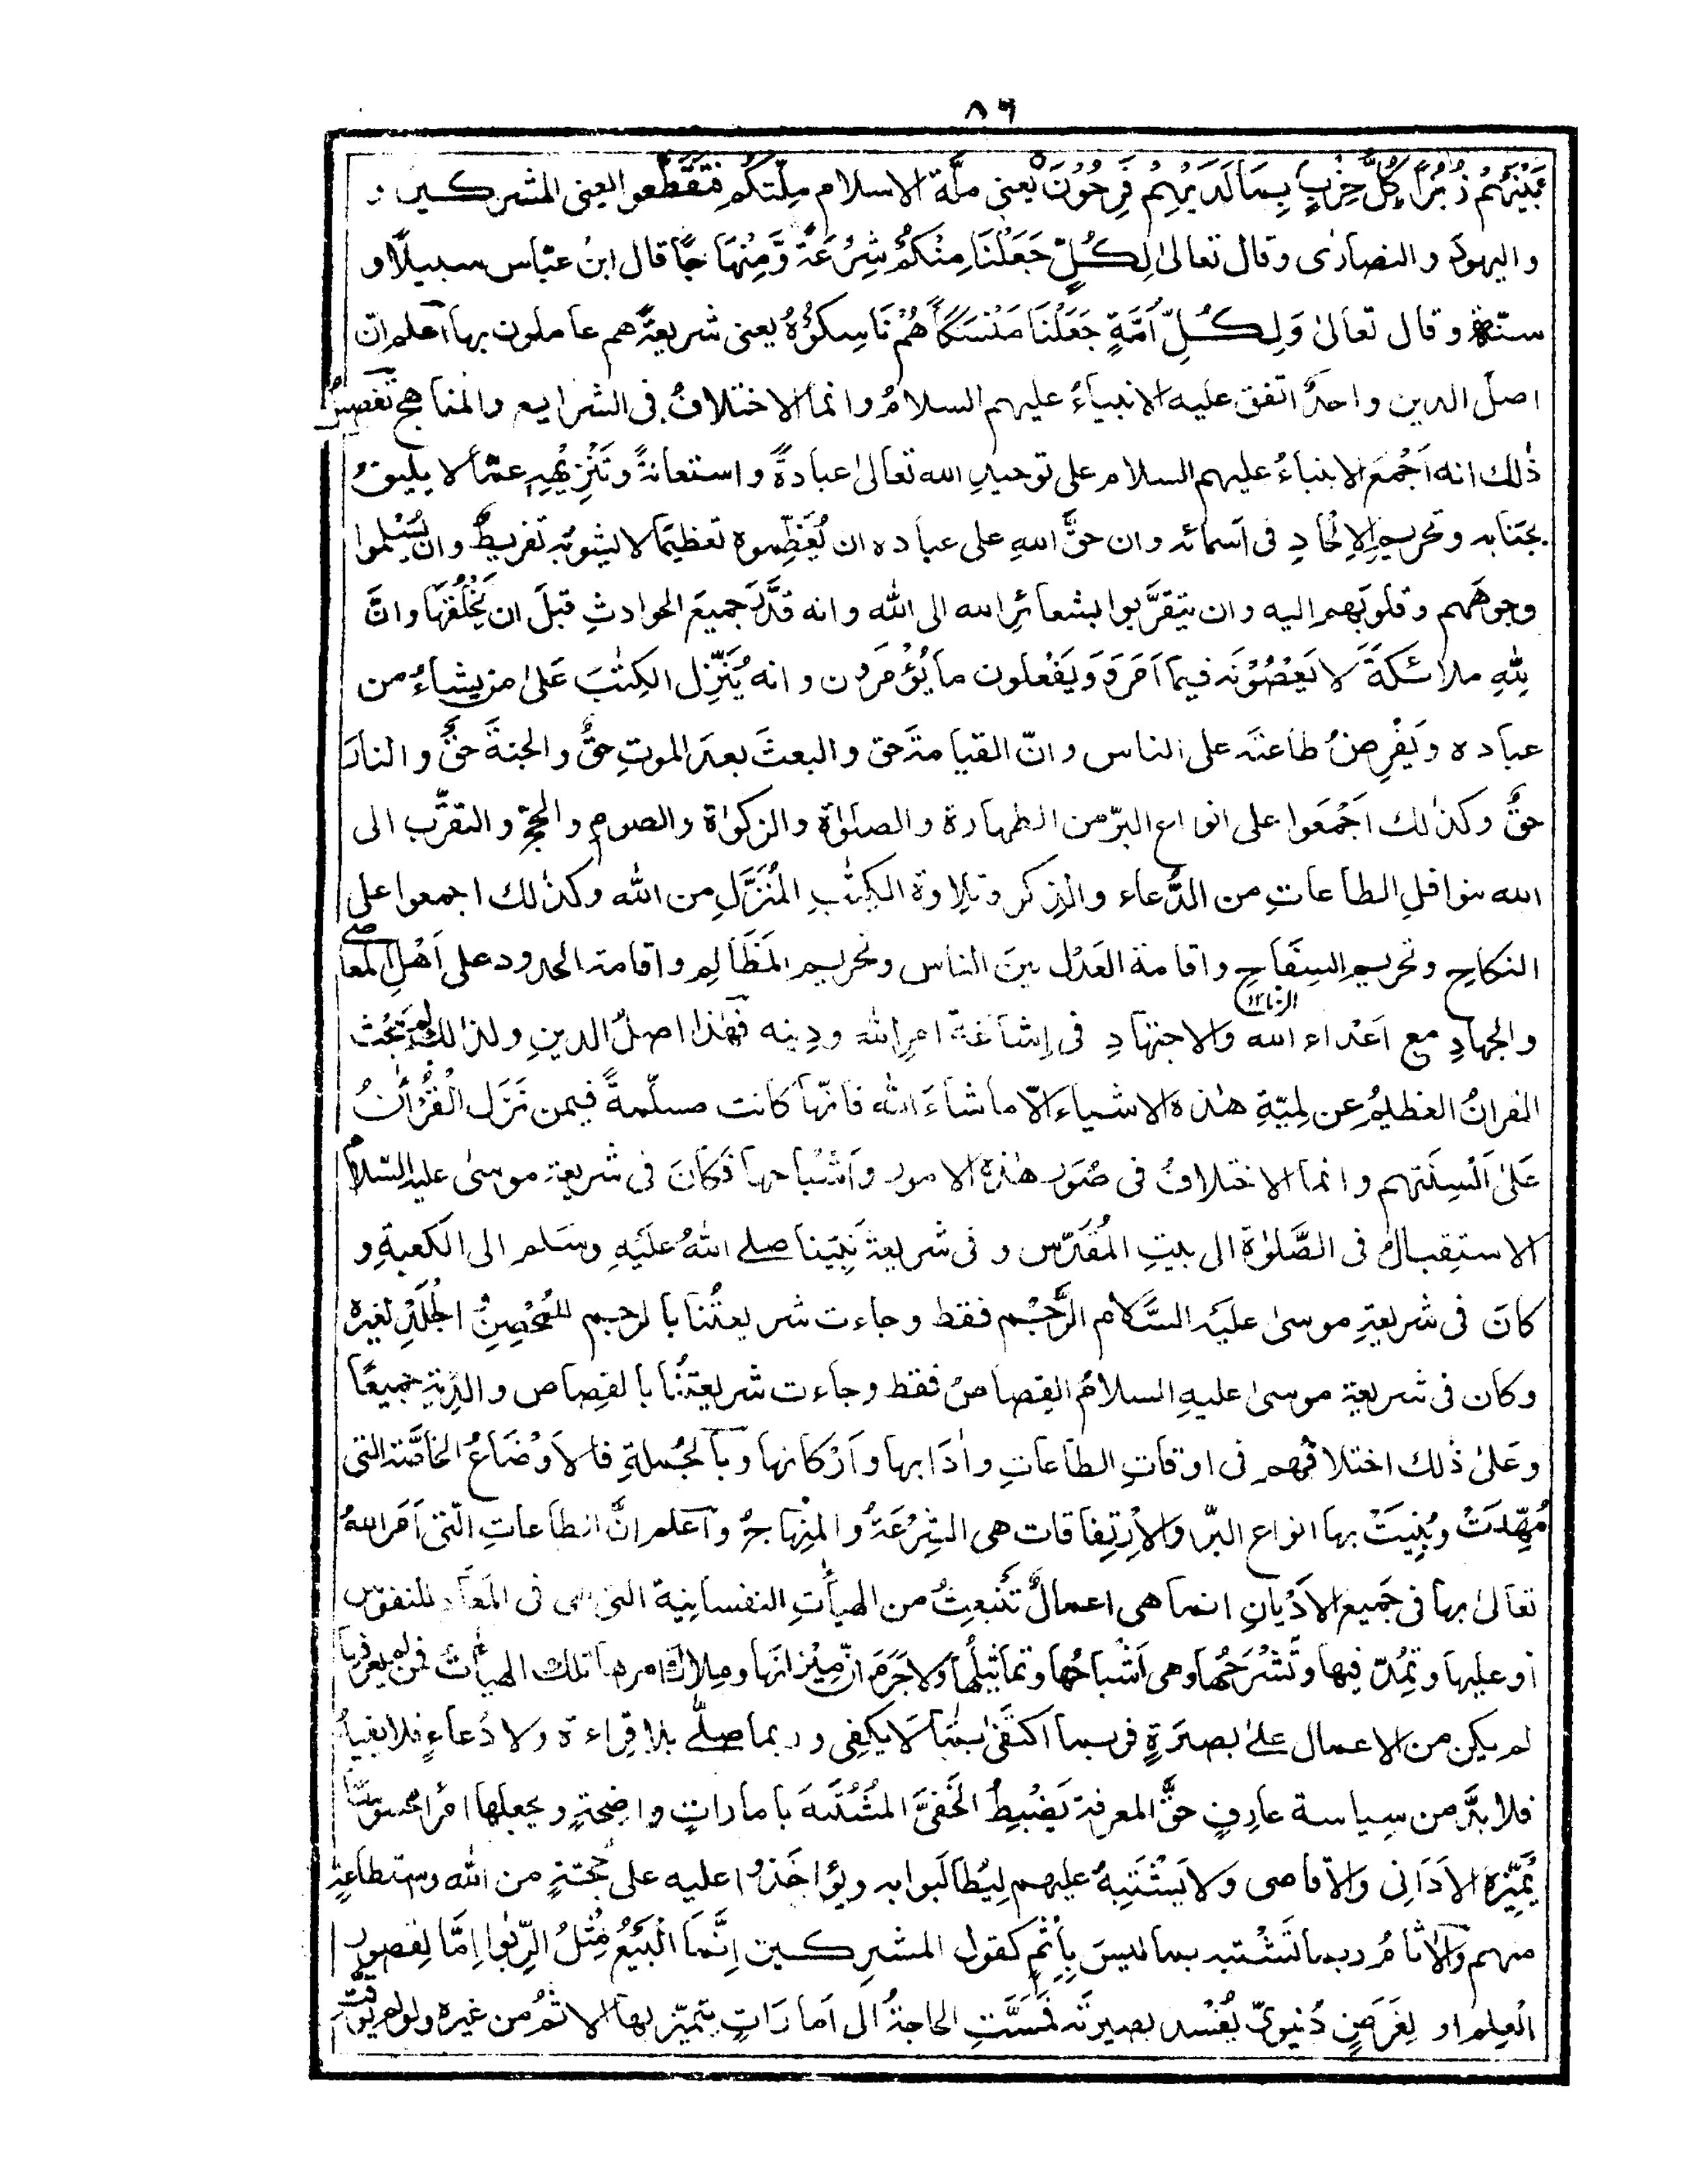 ٨٦
بَيْنَهُمْ زُبُرًا كُلُّ حِزْبٍ بِمَا لَدَيْهِمْ فَرِحُوْنَ يعنى ملّة الاسلام ملّتكم فتقطّعوا يعنى المشركين
واليهودَ والنصارٰى وقال تعالىٰ لِكُلٍّ جَعَلْنَا مِنْكُمْ شِرْعَةً وَّمِنْهَاجًا قال ابنُ عبّاس سبيلاً و
سنّةً وقال تعالىٰ وَلِكُلِّ اُمَّةٍ جَعَلْنَا مَنْسَكًا هُمْ نَاسِكُوْهُ يعنى شريعةً هم عاملون بها اعلم انّ
اصلَ الدين واحدٌ اتفق عليه الانبياءُ عليهم السلامُ وانما الاختلافُ فى الشرايع والمناهج تفصيلُ
ذٰلك انه اَجْمَعَ الانبياءُ عليهم السلام على توحيدِ الله تعالىٰ عبادةً واستعانةً وتَنْزِيْهِهٖ عمّا لا يليقُ
بجنابه وتحريمِ الاِلْحَادِ فى اَسمائه وان حقَّ اللهِ على عباده ان يُعَظِّموه تعظيمًا لا يشوبُه تفريطٌ وان يُسْلِموا
وجوهَهم وقلوبَهم اليه وان يتقرَّبوا بشعائرِ الله الى الله وانه قدَّرَ جميعَ الحوادثِ قبلَ ان يَخْلُقَهَا وانَّ
لِلّٰهِ ملائكةً لا يَعْصُوْنَه فيما اَمَرَ وَيَفْعلون ما يُؤْمَرُون وانه يُنَزِّل الكِتٰبَ عَلىٰ من يشاءُ من
عباده ويَفْرِضُ طاعتَه على الناس وانّ القيامةَ حق والبعثَ بعدَ الموتِ حقٌّ والجنةَ حقٌّ والنارَ
حقٌّ وكذٰلك اَجْمَعوا على انواع البرّ من الطهارة والصلٰوة والزكوٰة والصوم والحجّ والتقرّب الى
الله بنوافلِ الطاعاتِ من الدُّعاء والذِكر وتلاوة الكِتٰبِ المُنَزَّلِ من الله وكذٰلك اجمعوا على
النكاحِ وتحريمِ السِفَاحِ واقامة العَدْلِ بينَ الناس وتحريم المَظَالِم واقامة الحدود على اَهْلِ المعاصى
الزنا ١٢
والجهادِ مع اَعْداء الله والاجتهادِ فى اِشاعةِ امرِ الله ودِينه فهٰذا اصلُ الدين ولذٰلك لم تبحث
القرانُ العظيمُ عن لِمِيّةِ هٰذه الاشياء الّا ما شاءَ الله فانّها كانت مسلّمةً فيمن نَزَل الْقُرْاٰنُ
عَلىٰ اَلْسِنَتهم وانما الاختلافُ فى صُوَر هٰذه الامور واَشْبَاحها فكانَ فى شريعة موسىٰ عليه السّلام
الاستقبالُ فى الصَّلوٰة الى بيتِ المُقَدّس وفى شريعة نَبِيّنا صلے اللهُ عَلَيْهِ وسَلم الى الكَعبةِ و
كانَ فى شريعةِ موسىٰ عليَه السَّلام الرَّجْم فقط وجاءت شريعتُنا بالرجم للمُحْصِنِ والجَلْدِ لغيره
وكان فى شريعة موسىٰ عليهِ السلامُ القِصاصُ فقط وجاءت شريعتُنا بالقِصاص والدِّية جميعًا
وعَلىٰ ذٰلك اختلافُهم فى اوقاتِ الطاعاتِ واٰدَابها واَرْكانها وبالجُملةِ فالاَوْضَاعُ الخاصّة التى
مُهِّدَتْ وبُنِيَتْ بها انواع البرّ والاِرْتِفاقات هى الشِرْعَةُ والمِنْهاجُ واَعلم انّ الطاعاتِ الّتى اَمَر اللهُ
تعالىٰ بها فى جَميع الاَدْيانِ انما هى اعمالٌ تَنْبعِثُ من الهيأتِ النفسانية التى هى فى المَعَاد للنفوس
اَو عليها وتمُدّ فيها وتَشْرَحُها وهى اَشْباحُها وتماثيلُها ولا جَرَمَ انّ مِيْزانَها ومِلاكَ امرها تلك الهيأتُ فمن لم يعرفها
لم يكن من الاعمال علىٰ بصيرةٍ فربما اكتَفىٰ بما لا يَكفِى وربما صلّٰے بلا قِراءة ولا دُعاءٍ فلا يفيدُ
فلا بدَّ من سِياسة عارفٍ حقَّ المعرفة يَضْبِطُ الخَفِىَّ المُشْتَبِهَ بامارات واضحةٍ ويجعلها امرًا محسوسًا
يُمَيِّزه الاَدَانى والاَقاصى ولا يَشْتَبِهُ عليهم لِيُطَالَبوا به ويؤاخَذوا عليه على حُجّةٍ من الله واستطاعةٍ
منهم والاٰثامُ ربما تَشْتَبه بما ليسَ بِاِثْمٍ كقول المشرِكين اِنَّمَا الْبَيْعُ مِثْلُ الرِّبٰوا اِمَّا لِقصور
العِلم او لِغَرَضٍ دُنيوىّ يُفْسد بصيرتَه فمَسَّتِ الحاجةُ الى اَمارَاتٍ يتميّز بها الاثمُ من غيره ولو لم يُوَقَّت